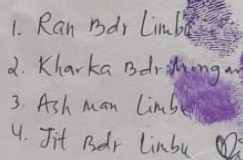 1. Ran Bdr Limbu
2. Kharka Bdr Mongar
3. Ash man Limbu
4. Jit Bdr Limbu